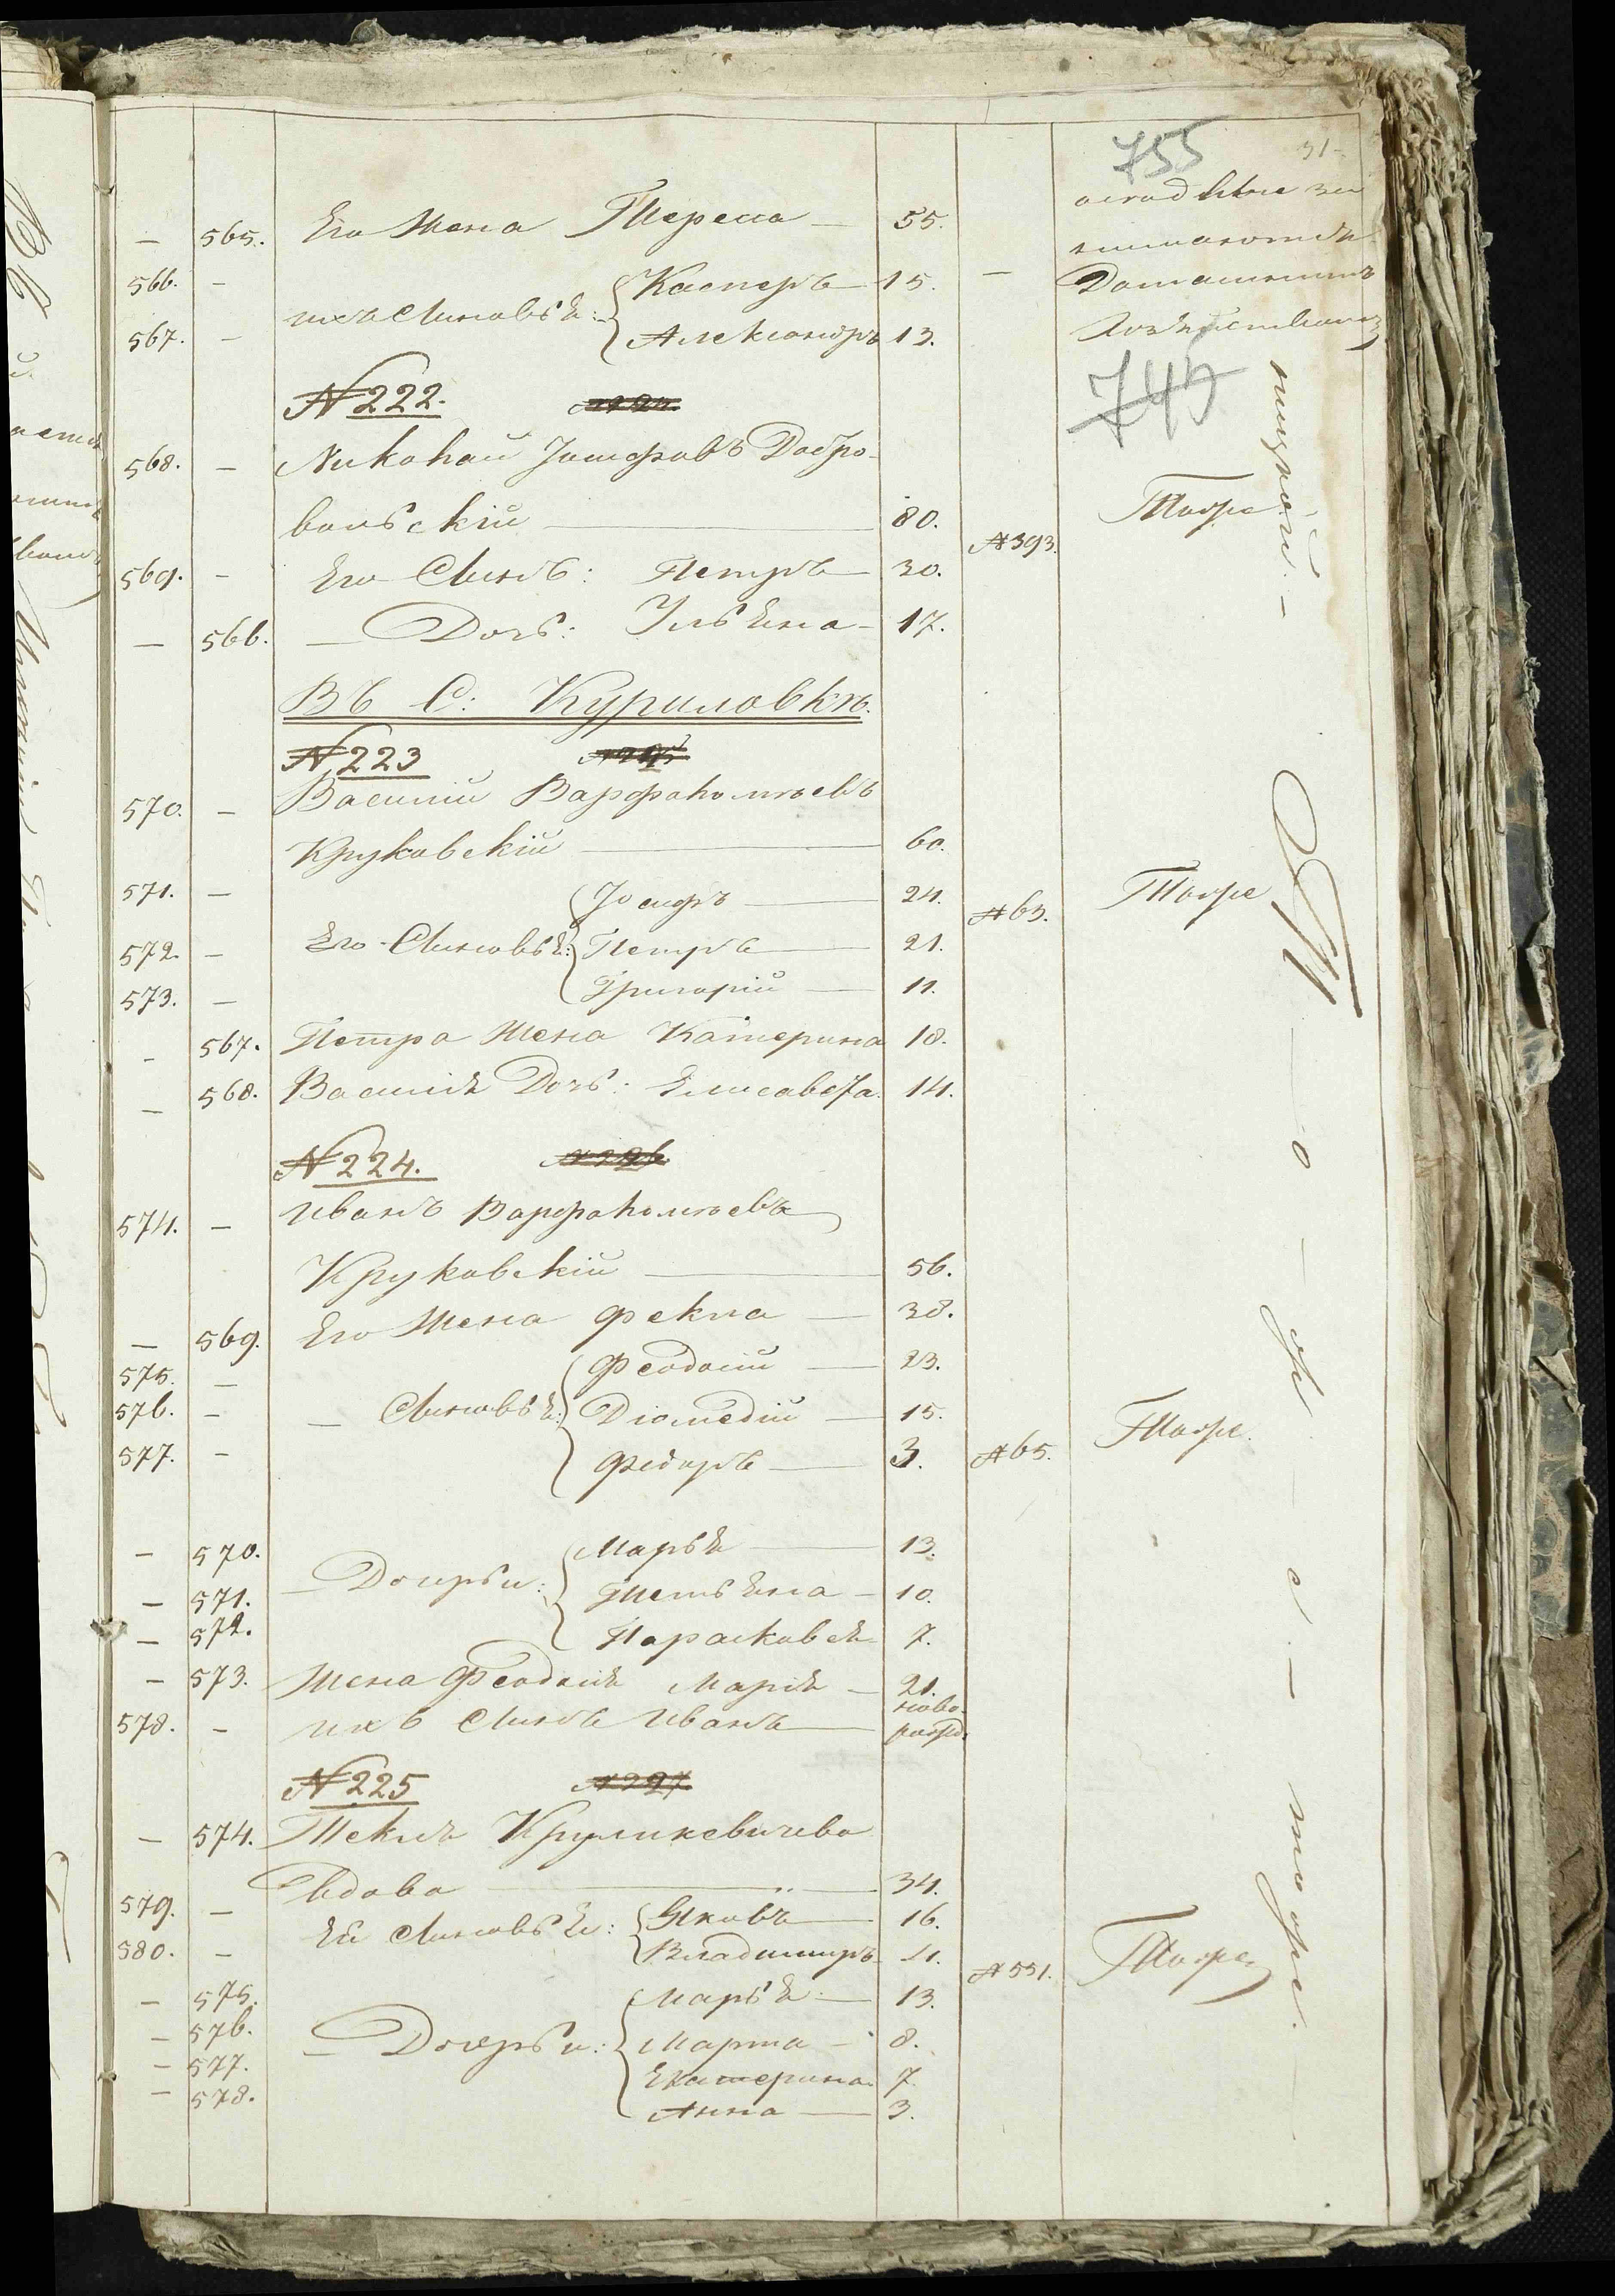 755
31
— 565. Его Жена Тереса — 55.
оседлые за
нимаются
566. — ихъ Сыновья: Касперъ — 15. —
Домашнимъ
567. — Александръ 13.
Хозяйствомъ
749
№ 222.
568. — Николай Іосифовъ Добро-
вольскій — 80. № 393. Тоже
569. — Его Сынъ: Петръ — 30.
— 566. — Дочь: Ульяна — 17.
Въ С: Куриловкѣ.
№ 223
570. — Василий Варфоломѣевъ
Круковскій — 60.
571. — Іосифъ — 24. № 63. Тоже
572. — Его Сыновья: Петръ — 21.
573. — Григорій — 11.
— 567. Петра Жена Катерина 18.
— 568. Василія Дочь: Елисавета. 14.
№ 224.
574. — Иванъ Варфоломѣевъ
Круковскій — 56.
— 569. Его Жена Фекла — 38.
575. — Феодосій — 23.
576. — — Сыновья: Діомедій — 15.
577. — Федоръ — 3. № 65. Тоже.
— 570. Марья — 13.
— 571. — Дочерьи: Тетьяна — 10.
— 572. Парасковея 7.
— 573. Жена Феодосія Марія — 21.
578. — ихъ Сынъ Иванъ — ново-
рожд.
№ 225
— 574. Текля Круликевичева
Вдова — 34.
579. — Ея Сыновья: Яковъ — 16.
580. — Владимиръ 11. № 551. Тоже
— 575. Марья — 13.
— 576. — Дочерьи: Марта — 8.
— 577. Екатерина 7.
— 578. Анна — 3.
— о — — с. — тоже. —